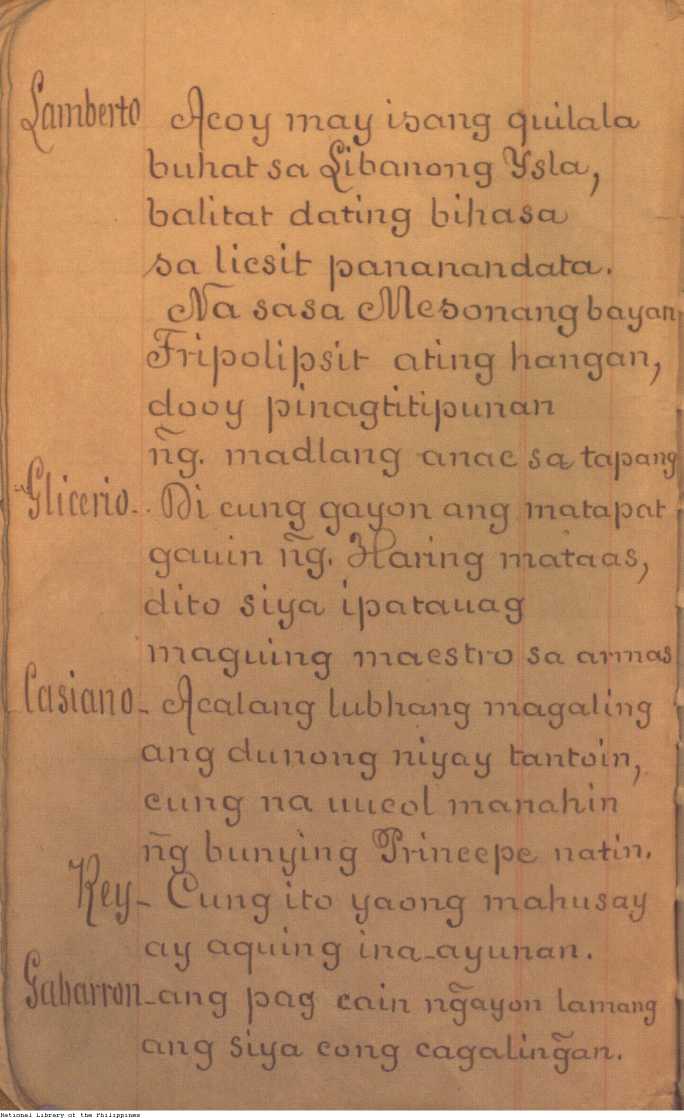 Lamberto Acoy may isang quilala
buhat sa Libanong Ysla,
balitat dating bihasa
sa licsit pananandata.
Na sasa Mesonang bayan
Fripolipsit ating hangan,
dooy pinagtitipunan
n͠g. madlang anac sa tapang
Glicerio- Di cung gayon ang matapat
gauin n͠g. Haring mataas,
dito siya ipatauag
maguing maestro sa armas
Casiano- Acalang lubhang magaling
ang dunong niyay tantoin,
cung na uucol manahin
n͠g bunying Princepe natin.
Rey- Cung ito yaong mahusay
ay aquing ina-ayunan.
Gabarron- ang pag cain n͠gayon lamang
ang siya cong cagalin͠gan.
National Library of the Philippines